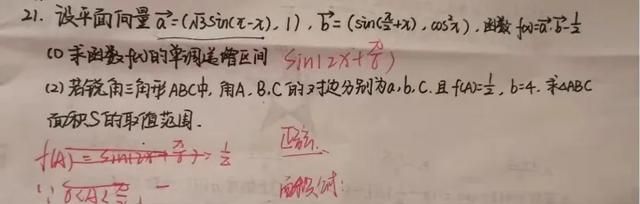 21. 设平面向量 a⃗=(√3sin(π-x), 1), b⃗=(sin(π/2+x), cos²x), 函数 f(x)=a⃗·b⃗-1/2
(1) 求函数f(x)的单调递增区间 sin(2x+π/6)
(2) 若锐角三角形ABC中, 角A.B.C的对边分别为a,b,c.且f(A)=1/2, b=4. 求△ABC
面积S的取值范围.
f(A)=sin(2x+π/6)=1/2 正弦..
∵ 0<A<π/2, 面积S对: